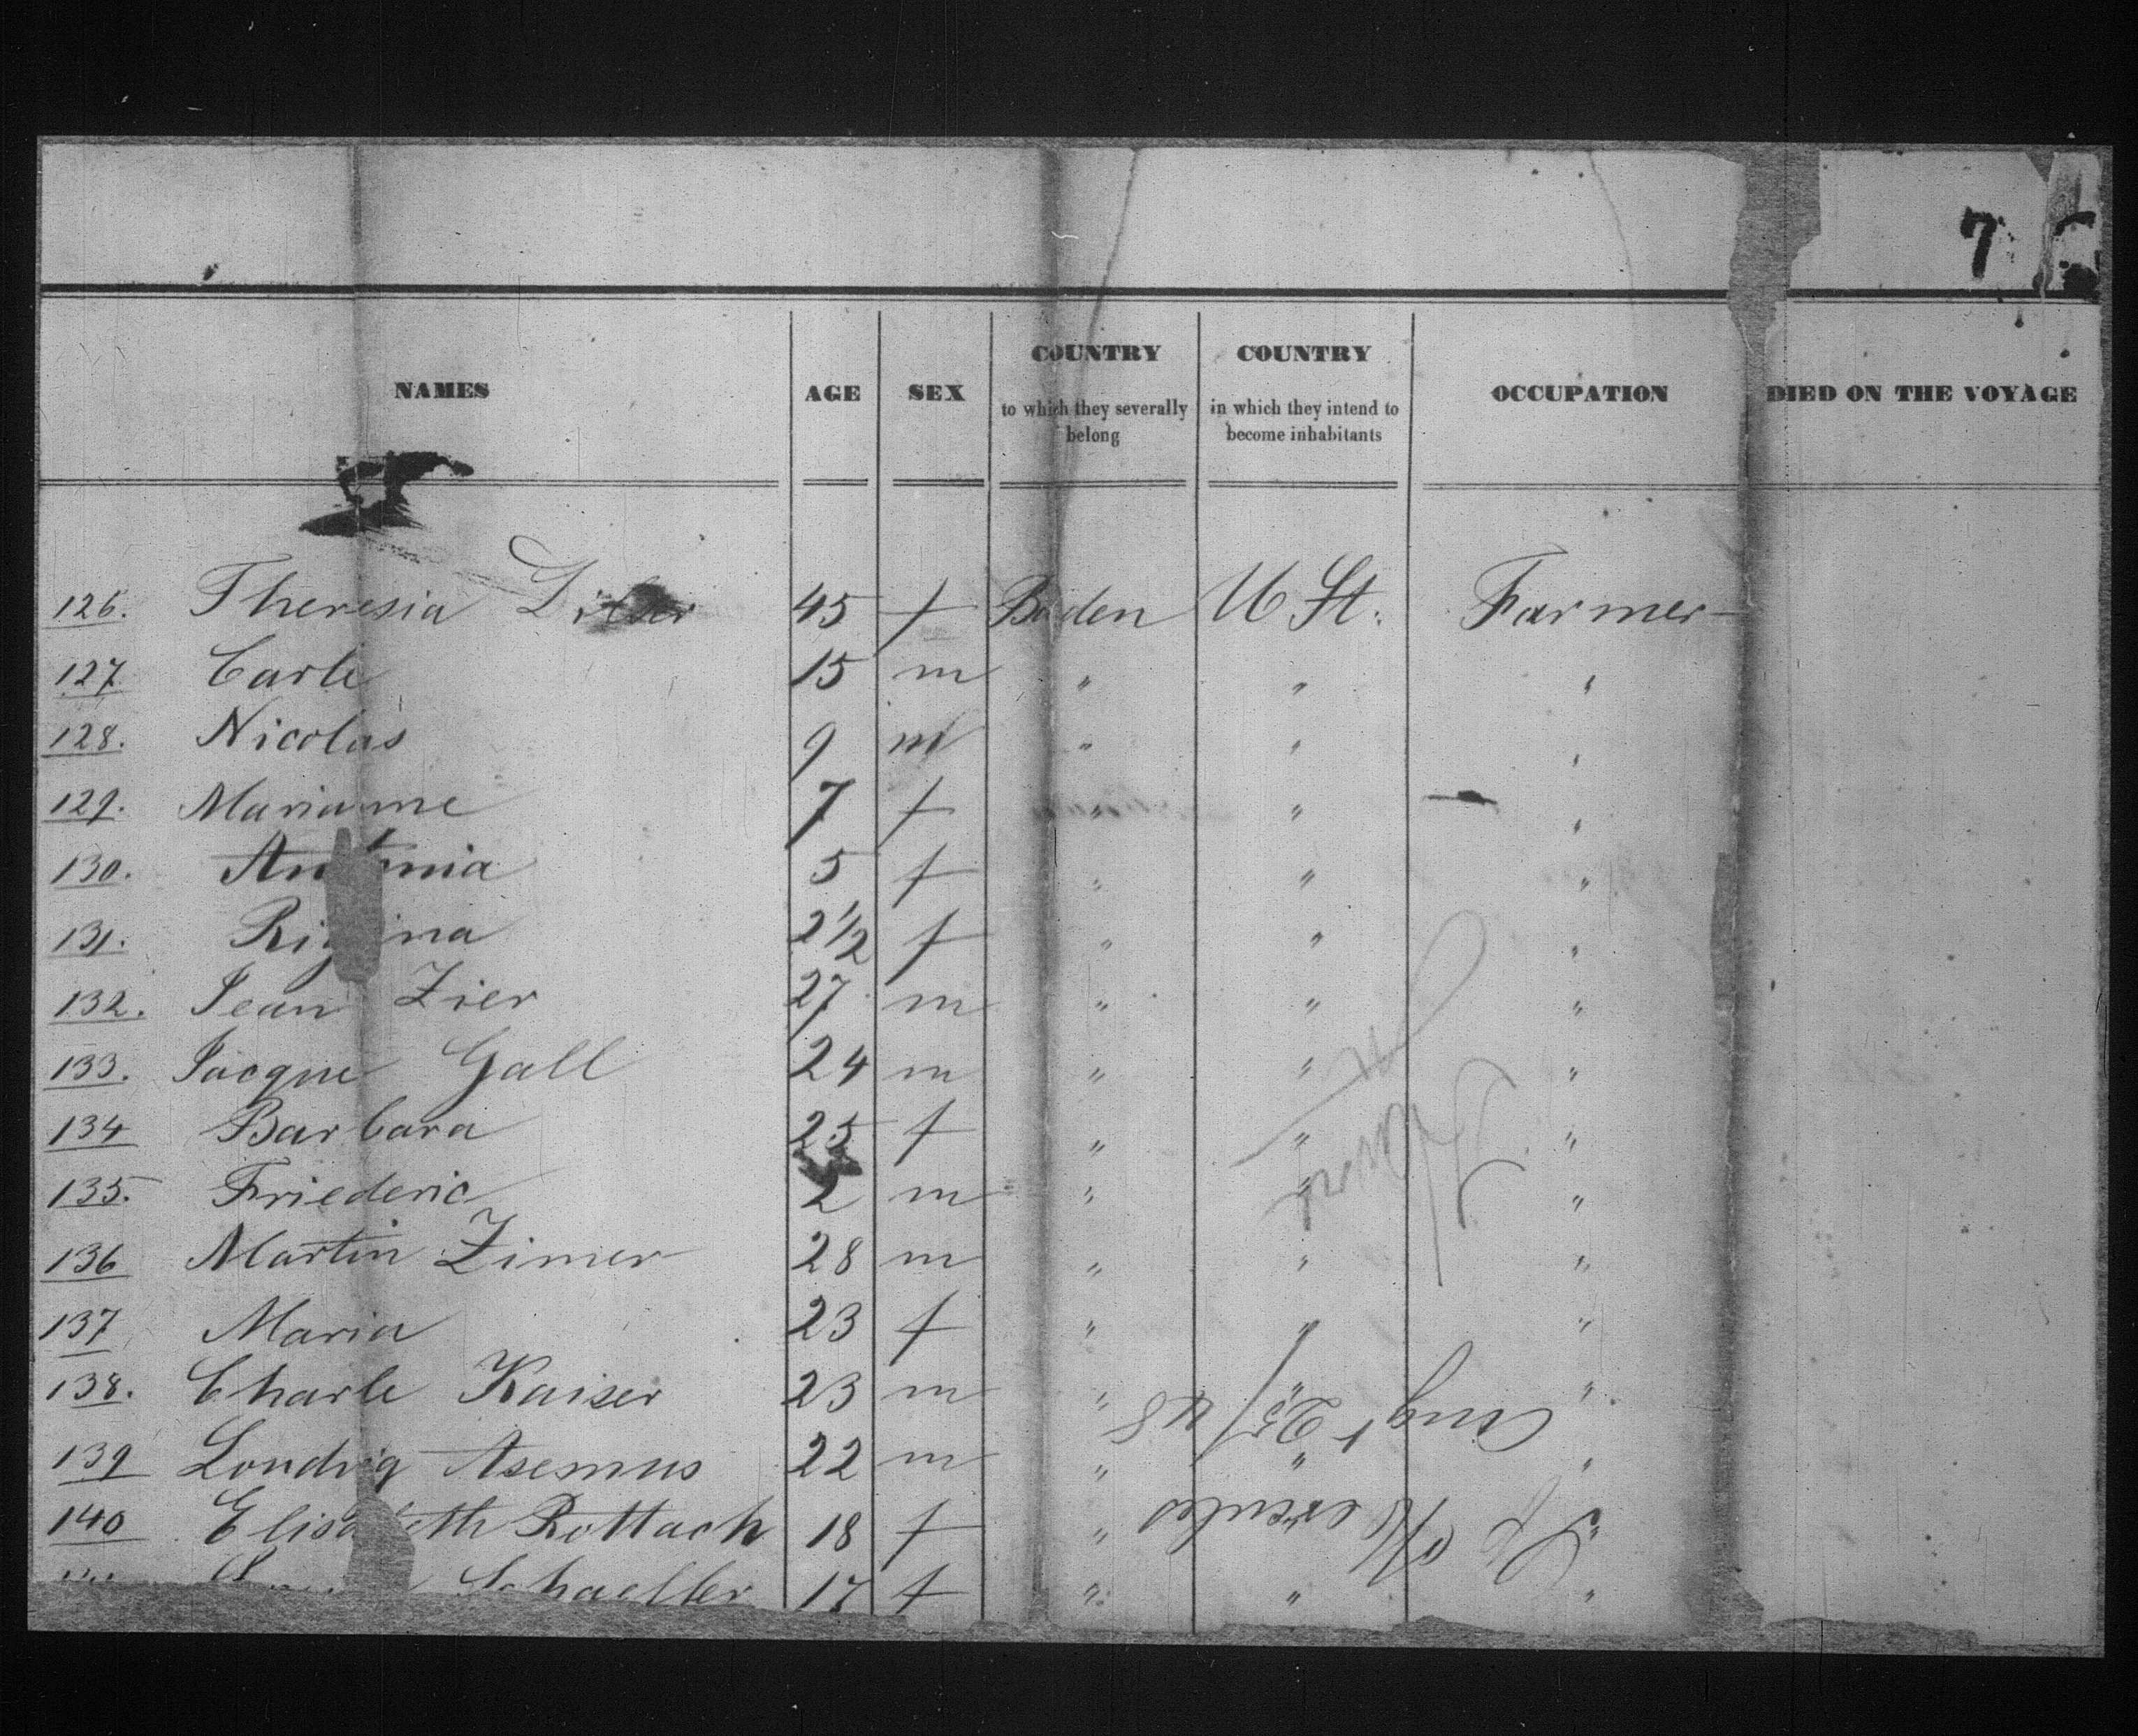 7
NAMES AGE SEX COUNTRY to which they severally belong COUNTRY in which they intend to become inhabitants OCCUPATION DIED ON THE VOYAGE
126. Theresia 45 f Baden U St. Farmer
127 Carle 15 m " " "
128. Nicolas 9 m " " "
129. Marianne 7 f " " "
130. Antonia 5 f " " "
131. Rigina 2 1/2 f " " "
132. Jean Zier 27 m " " "
133. Jacque Gall 24 m " " "
134 Barbara 25 f " " "
135. Friederic 2 m " " "
136 Martin Zimer 28 m " " "
137 Maria 23 f " " "
138. Charle Kaiser 23 m " " "
139 Loudvig Asemus 22 m " " "
140 Elisabeth Rottach 18 f " " "
Schaeffer 17 f " " "
Aug 25/48